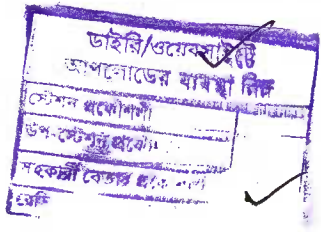 ডাইরি/ওয়েবসাইটে
আপলোডের ব্যবস্থা নিন
স্টেশন প্রকৌশলী
উপ-স্টেশন প্রকৌ
সহকারী বেতার প্রকৌশলী